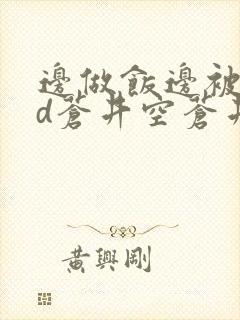 邊做飯邊被
d蒼井空蒼井
黃興剛